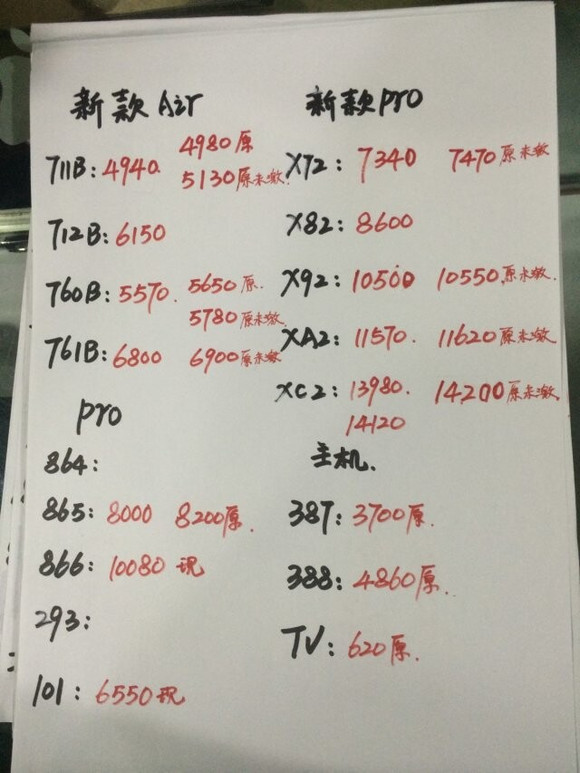 新款Air
4980原
711B: 4940
5130原未激.
712B: 6150
760B: 5570. 5650原.
5780原未激.
761B: 6800 6900原未激
pro
864:
865: 8000 8200原.
866: 10080 现
293:
101: 6550现
新款pro
X72: 7340 7470原未激
X82: 8600
X92: 10500 10550原未激.
XA2: 11570. 11620原未激
XC2: 13980. 14200原未激
14120
主机.
387: 3700原.
388: 4860原.
TV: 620原.